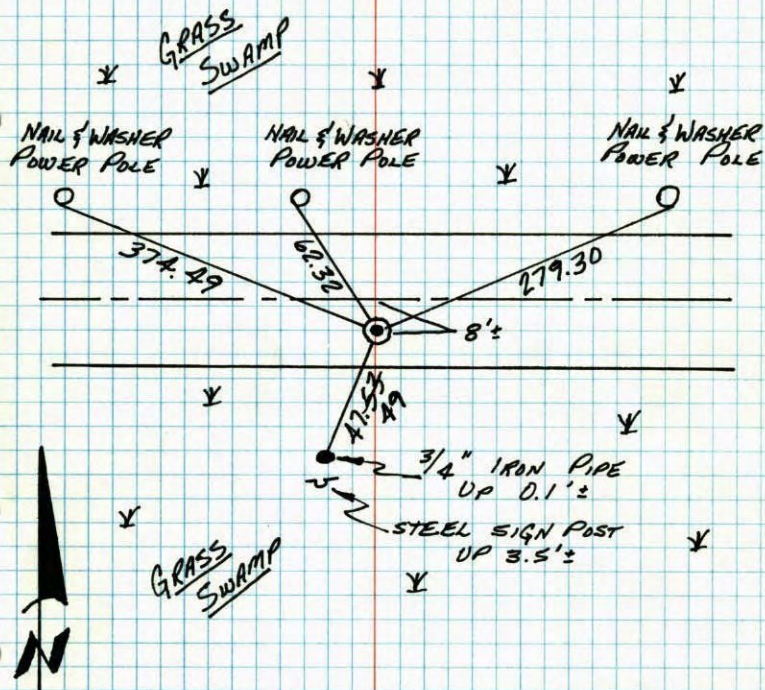 GRASS
SWAMP
NAIL & WASHER
POWER POLE
NAIL & WASHER
POWER POLE
NAIL & WASHER
POWER POLE
374.49
62.32
279.30
8'±
47.53
49
3/4" IRON PIPE
UP 0.1'±
STEEL SIGN POST
UP 3.5'±
GRASS
SWAMP
N